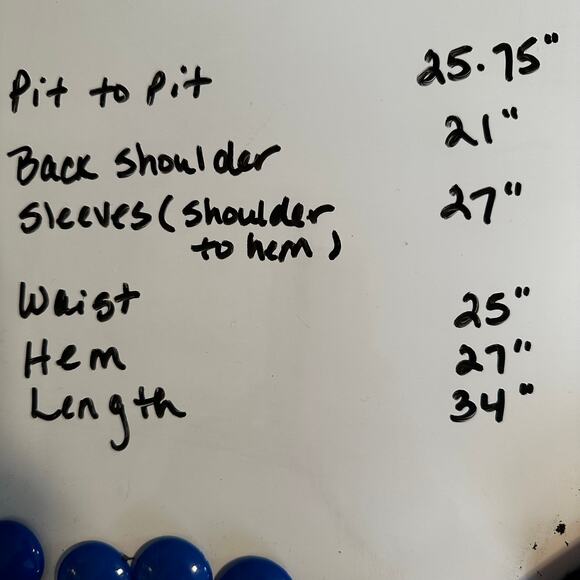 Pit to pit 25.75"
Back shoulder 21"
Sleeves (shoulder 27"
to hem)
Waist 25"
Hem 27"
Length 34"